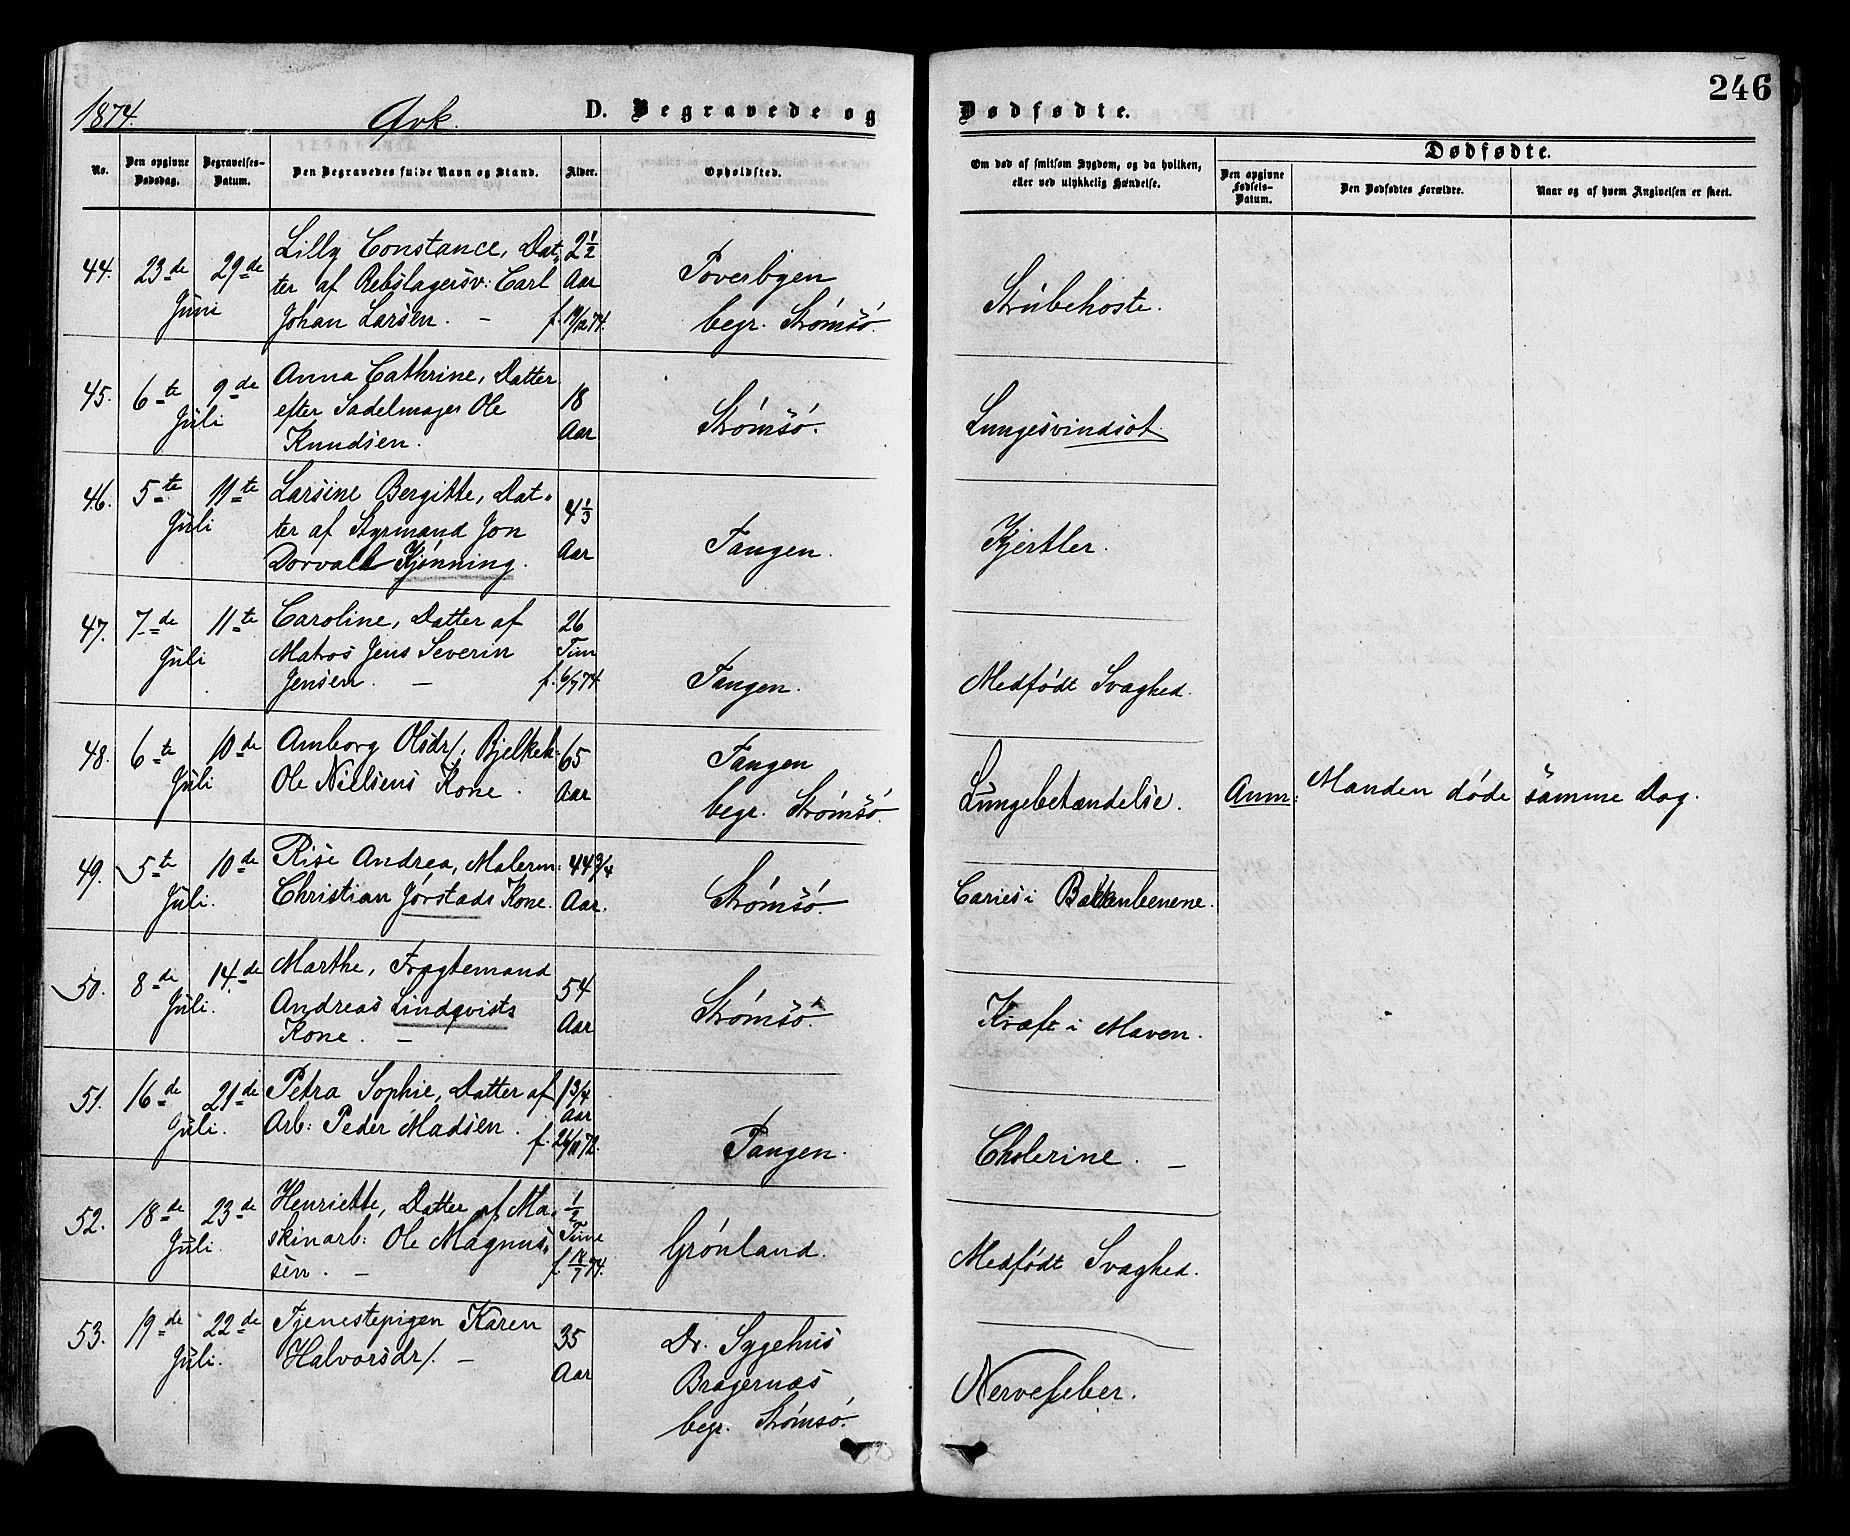 246
1874. Qvk. D. Begravede og Dødfødte.
No. Den opgivne Dødsdag. Begravelses-Datum. Den Begravedes fulde Navn og Stand. Alder. Opholdsted. Om død af smitsom Sygdom, og da hvilken, eller ved ulykkelig Hændelse. Dødfødte.
Den opgivne Fødsels-Datum. Den Dødfødtes Forældre. Naar og af hvem Angivelsen er skeet.
44. 23de Juni 29de Lilly Constance, Dat- 2½
ter af Rebslagersv: Carl Aar Toverbyen Strubehoste.
Johan Larsen. – f. 74. begr. Strømsö.
45. 6te Juli 9de Anna Cathrine, Datter 18
efter Sadelmager Ole Aar Strømsö. Lungesvindsot.
Knudsen.
46. 5te Juli 11te Larsine Bergitte, Dat- 4⅓
ter af Styrmand Jon Aar Tangen. Kjertler.
Dorvald Kjønning.
47. 7de Juli 11te Caroline, Datter af 26
Matros Jens Severin Tim Tangen. Medfødt Svaghed.
Jensen. – f. 6/7 74.
48. 6te Juli 10de Amborg Olsdr/. Bjelkeh: 65 Tangen
Ole Nielsens Kone. Aar begr. Strømsö. Lungebetændelse. Anm: Manden døde samme Dag.
49. 5te Juli. 10de Rise Andrea, Malerm: 44 3/4
Christian Jórstads Kone. Aar. Strømsö. Caries i Bakkenbenene.
50. 8de Juli. 14de Marthe, Fragtemand 54
Andreas Lindqvists Aar Strømsö. Kræft i Maven.
Kone. –
51. 16de Juli. 21de Petra Sophie, Datter af 1 3/4 Aar
Arb: Peder Madsen. f. 26/11 72. Tangen. Cholerine. –
52. 18de Juli. 23de Henriette, Datter af Ma- ½
skinarb: Ole Magnus- Time Grønland. Medfødt Svaghed.
sen. – f. 18/7 74.
53. 19de Juli. 22de Tjenestepigen Karen 35 Dr. Sygehus
Halvorsdr/. – Aar Bragernæs Nervefeber.
begr. Strømsö.